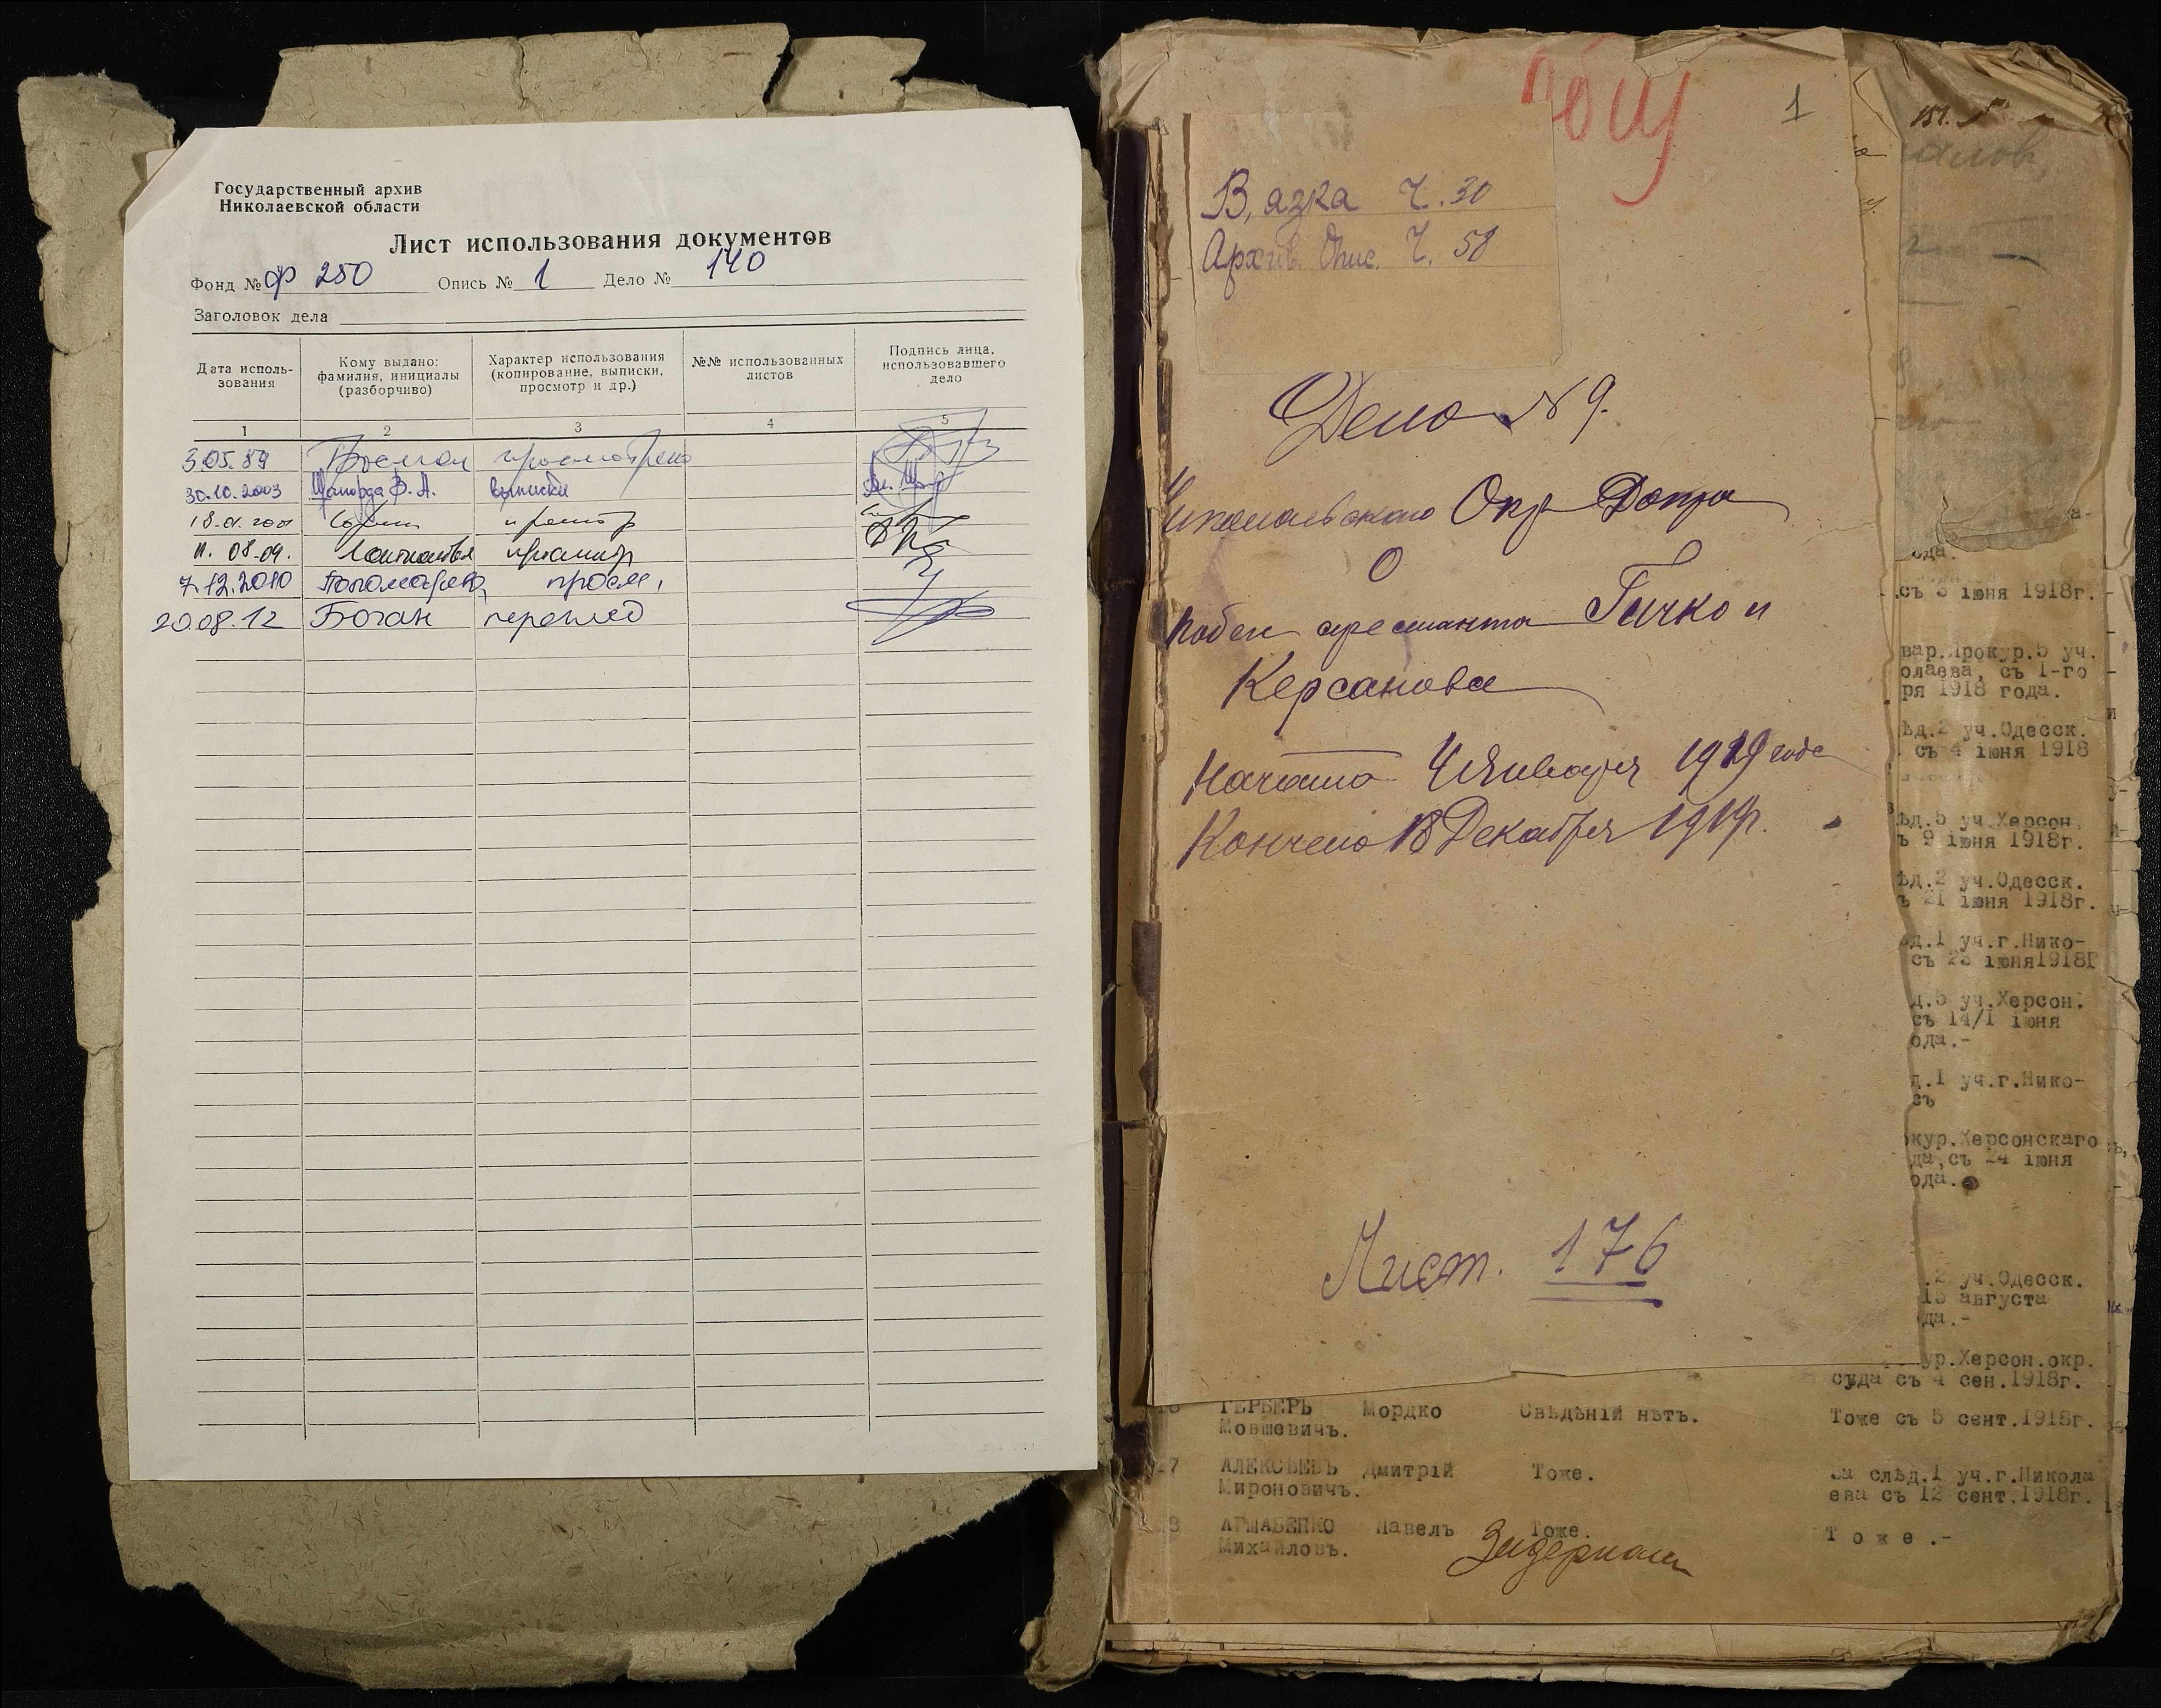 Государственный архив
Николаевской области
Лист использования документов
Фонд № ф 250 Опись № 1 Дело № 140
Заголовок дела
Дата исполь-
зования
Кому выдано:
фамилия, инициалы
(разборчиво)
Характер использования
(копирование, выписки,
просмотр и др.)
№№ использованных
листов
Подпись лица,
использовавшего
дело
1 2 3 4 5
3.05.89 просмотрено
30.10.2003 В. А. выписки
11. 08.09.
7.12.2010 просм,
20.08.12 Боган
общ
1
В, язка Ч. 30
Архив. Опис. Ч. 58
Дело № 9.
Николаевского Окр Допра
О
побеге арестанта Гичко и
Керсанова
Начато 4 Января 1919 года
Кончено 18 Декабря 1919г.
Лист. 176
151.
съ 3 iюня 1918г.
вар.Прокур.5 уч.
олаева, съ 1-го
ря 1918 года.
ѣд.2 уч.Одесск.
съ 4 iюня 1918
ѣд.5 уч.Херсон.
ъ 9 iюня 1918г.
ѣд.2 уч.Одесск.
ъ 21 iюня 1918г.
ѣд.1 уч.г.Нико-
съ 23 iюня1918г
д.5 уч.Херсон.
съ 14/1 iюня
ода.-
д.1 уч.г.Нико-
съ
окур.Херсонскаго
да,съ 24 iюня
ода.
.2 уч.Одесск.
15 августа
да.-
ур.Херсон.окр.
суда съ 4 сен.1918г.
ГЕРБЕРЪ Мордко Свѣдѣнiй нѣтъ. Тоже съ 5 сент.1918г.
Мовшевичъ.
АЛЕКСѢЕВЪ Дмитрiй Тоже. За слѣд.1 уч.г.Никола
Мироновичъ. ева съ 12 сент.1918г.
Павелъ Тоже. Т о ж е .-
Михайловъ.